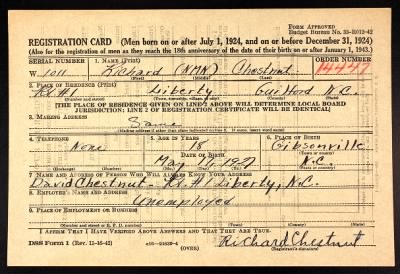 FORM APPROVED
Budget Bureau No. 33-R012-42
REGISTRATION CARD (Men born on or after July 1, 1924, and on or before December 31, 1924)
(Also for the registration of men as they reach the 18th anniversary of the date of their birth on or after January 1, 1943.)
SERIAL NUMBER 1. NAME (Print) ORDER NUMBER
W 1011 Richard (NMN) Chestnut 14447
(First) (Middle) (Last)
2. PLACE OF RESIDENCE (Print)
Rt. #1 Liberty Guilford N.C.
(Number and street) (Town, township, village, or city) (County) (State)
[THE PLACE OF RESIDENCE GIVEN ON LINE 2 ABOVE WILL DETERMINE LOCAL BOARD
JURISDICTION; LINE 2 OF REGISTRATION CERTIFICATE WILL BE IDENTICAL]
3. MAILING ADDRESS
Same
4. TELEPHONE 5. AGE IN YEARS 6. PLACE OF BIRTH
None 18 Gibsonville
DATE OF BIRTH
May 14 1927 N.C.
7. NAME AND ADDRESS OF PERSON WHO WILL ALWAYS KNOW YOUR ADDRESS
David Chestnut - Rt. #1 Liberty, N.C.
8. EMPLOYER'S NAME AND ADDRESS
Unemployed
9. PLACE OF EMPLOYMENT OR BUSINESS
(Number and street or R. F. D. number) (Town) (County) (State)
I AFFIRM THAT I HAVE VERIFIED ABOVE ANSWERS AND THAT THEY ARE TRUE.
DSS Form 1 (Rev. 11-16-42) (OVER) Richard Chestnut
(Registrant's signature)